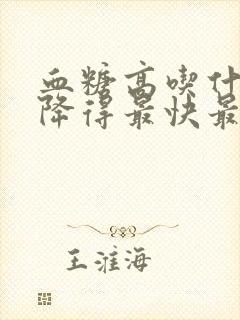 血糖高喫什
降得最快最
王淮海